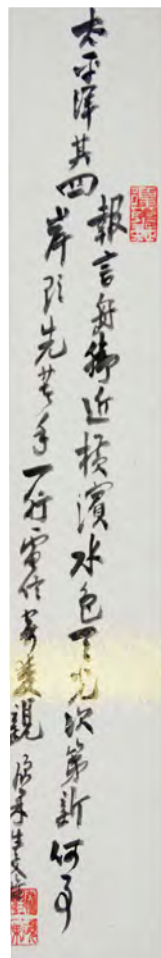 太平洋其四
報言舟近横濱水色天光次第新何事
岸頭先手一行電信寄親